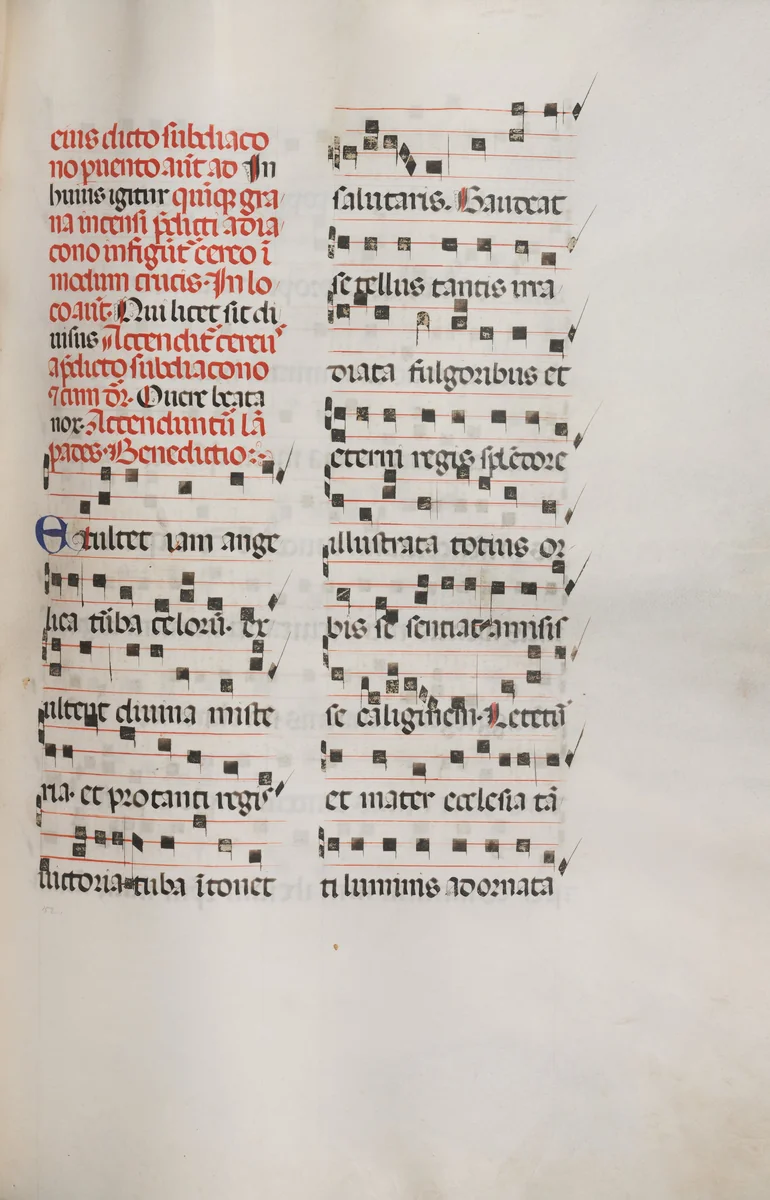 eius dicto subdiaco
no puento aut̄ ad In
huius igitur quiq̄ gra
na incensi p̄dicti adia
cono infigūt̄ cereo ī
modum crucis. In lo
co aut̄. Qui licet sit di
uisus Accendit̄ cereu᷒
ap̄dicto subdiacono
⁊cum dr̄. Ouere beata
nox. Accenduntū lā
pades. Benedictio:
Exultet iam ange
lica tūba celorū. ex
ultent diuina miste
ria. et pro tanti regis
uictoria tuba ītonet
salutaris. Gaudeat
se tellus tantis irra
diata fulgoribus et
eterni regis splēdore
illustrata totius or
bis se sentiat amisis
se caliginem. Letetu᷒
et mater ecclesia tā
ti luminis adornata